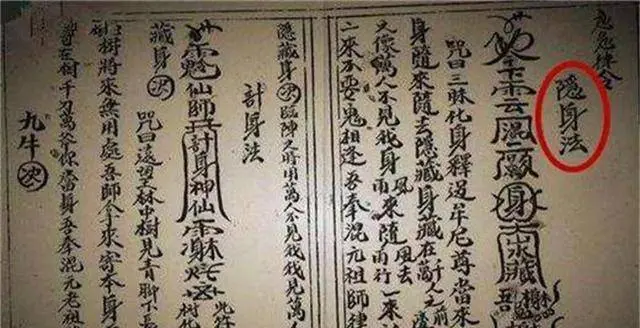 急急律令
隱身法
咒曰三昧化身釋迦牟尼尊當來
身隨來隨去隱藏身藏在萬千人之前
又像鴨人不見我身風來隨風去雨來隨雨行一來
二來不要鬼相逢吾奉混元祖師律
隱藏身次臨陣之時用萬人不見我我見萬人
計身法
仙師計身神仙
藏身次
咒曰遠望林中樹見青腳下長
樹將來無用處吾師拿來寄本身
在樹千刀萬斧你當身吾奉混元老祖
九牛次